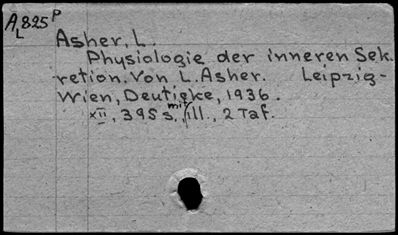 A 825 P
L
Asher, L.
Physiologie der inneren Sek.
retion. Von L. Asher. Leipzig-
Wien, Deuticke, 1936.
XII, 395 S. mit ill., 2 Taf.